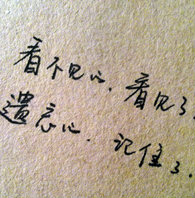 看不见的，看见了
遗忘的，记住了。